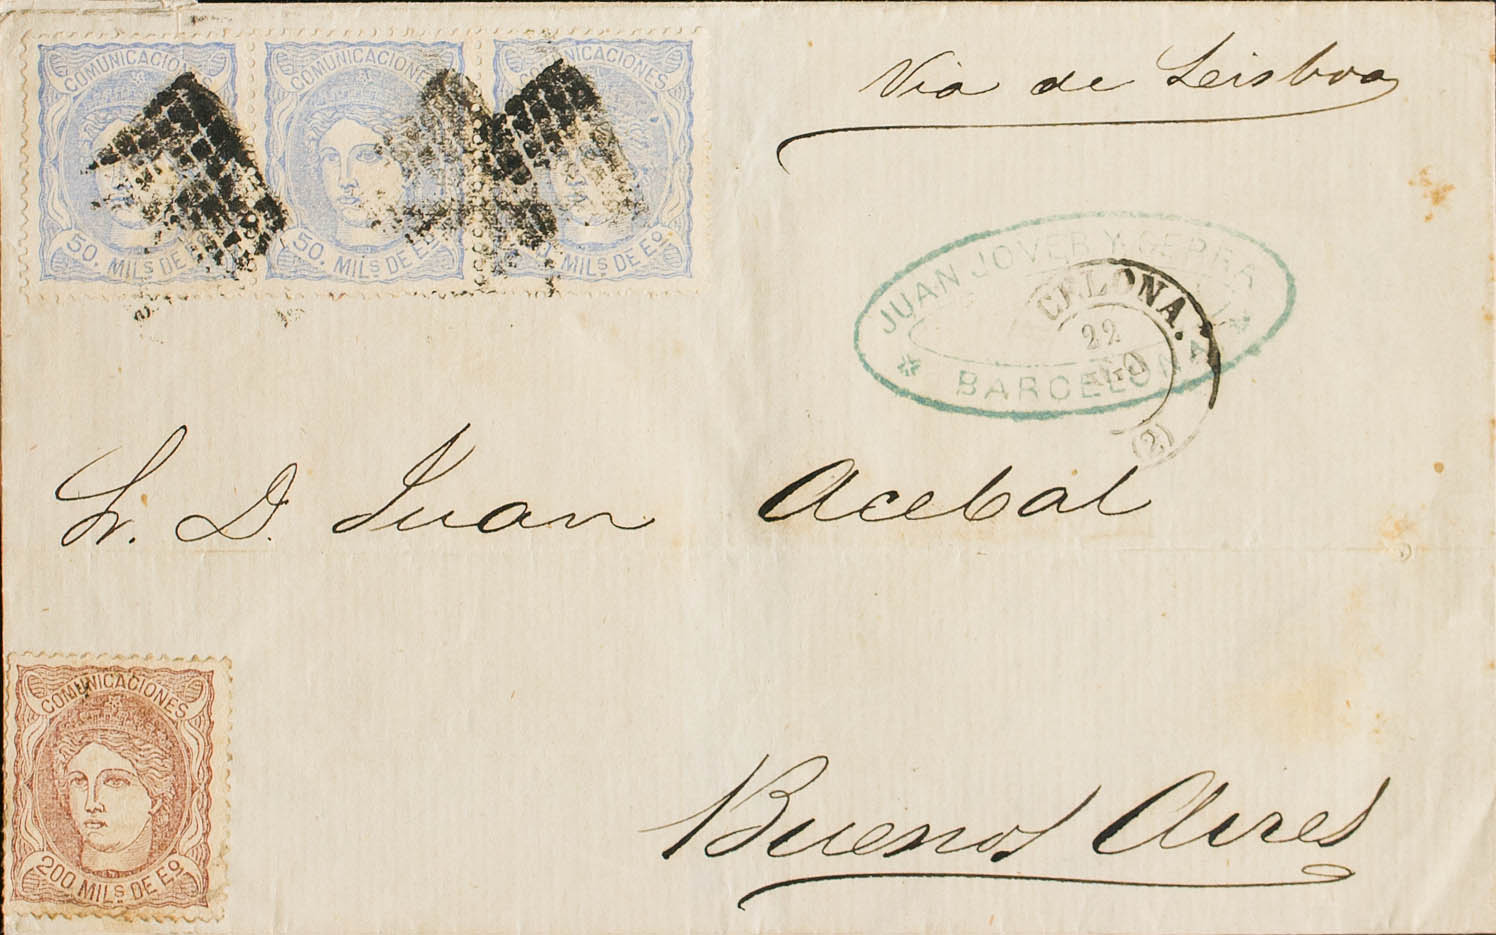 COMUNICACIONES
50. MILS DE Eº
COMUNICACIONES
50. MILS DE Eº
COMUNICACIONES
50. MILS DE Eº
Via de Leisboa
JUAN JOVER Y SERRA
BARCELONA
BARCELONA.
22
AGO
(2)
Sr. D. Juan Acebal
COMUNICACIONES
200 MILS DE Eº
Buenos Aires